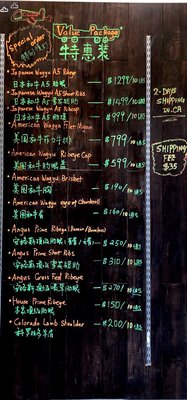 Special Order
特別訂單
Value Package
特惠裝
Japanese Wagyu A5 Ribeye — $1299/10LBS
日本和牛A5肋眼
Japanese Wagyu A5 Short Ribs — $1499/10LBS
日本和牛A5
Japanese Wagyu A5 Ribcap — $999/10LBS
日本和牛A5
American Wagyu Filet Mignon — $799/10LBS
美国和牛菲力牛排
American Wagyu Ribeye Cap — $599/10LBS
美国和牛肋眼盖
American Wagyu Brisket — $190/10LBS
美国和牛胸
American Wagyu eye of Chuckroll — $310/10LBS
美国和牛
Angus Prime Ribeye (Boneless) — $250/10LBS
Angus Prime Short Ribs — $310/10LBS
Angus Grass Fed Ribeye — $270/10LBS
House Prime Ribeye — $150/10LBS
Colorado Lamb Shoulder — $200/10LBS
科罗拉多羊肩
2-DAYS
SHIPPING
IN CA
SHIPPING
FEE
$35